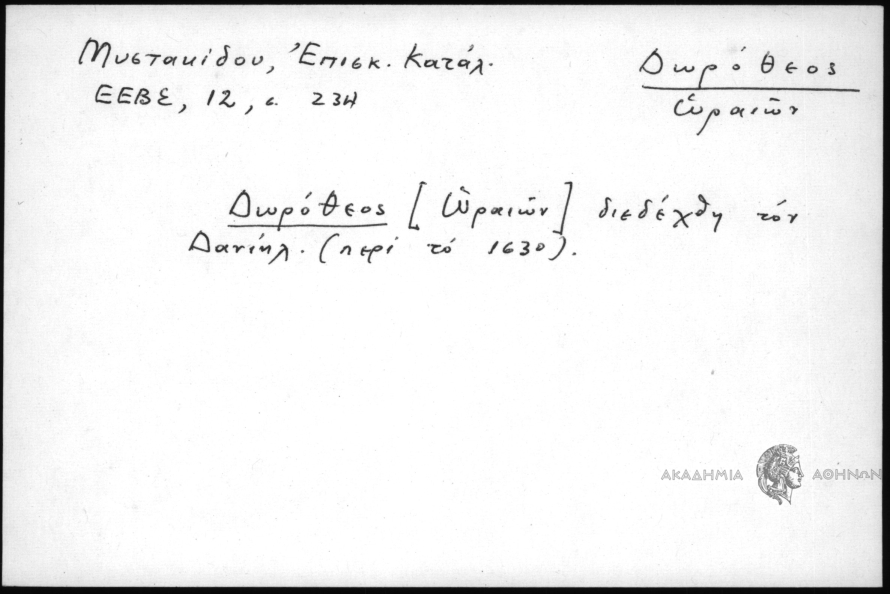 Μυστακίδου, Ἐπισκ. Κατάλ.
ΕΕΒΣ, 12, σ. 234
Δωρόθεος
Ὠραιῶν
Δωρόθεος [Ὠραιῶν] διεδέχθη τόν
Δανιήλ. (περί τό 1630).
ΑΚΑΔΗΜΙΑ ΑΘΗΝΩΝ